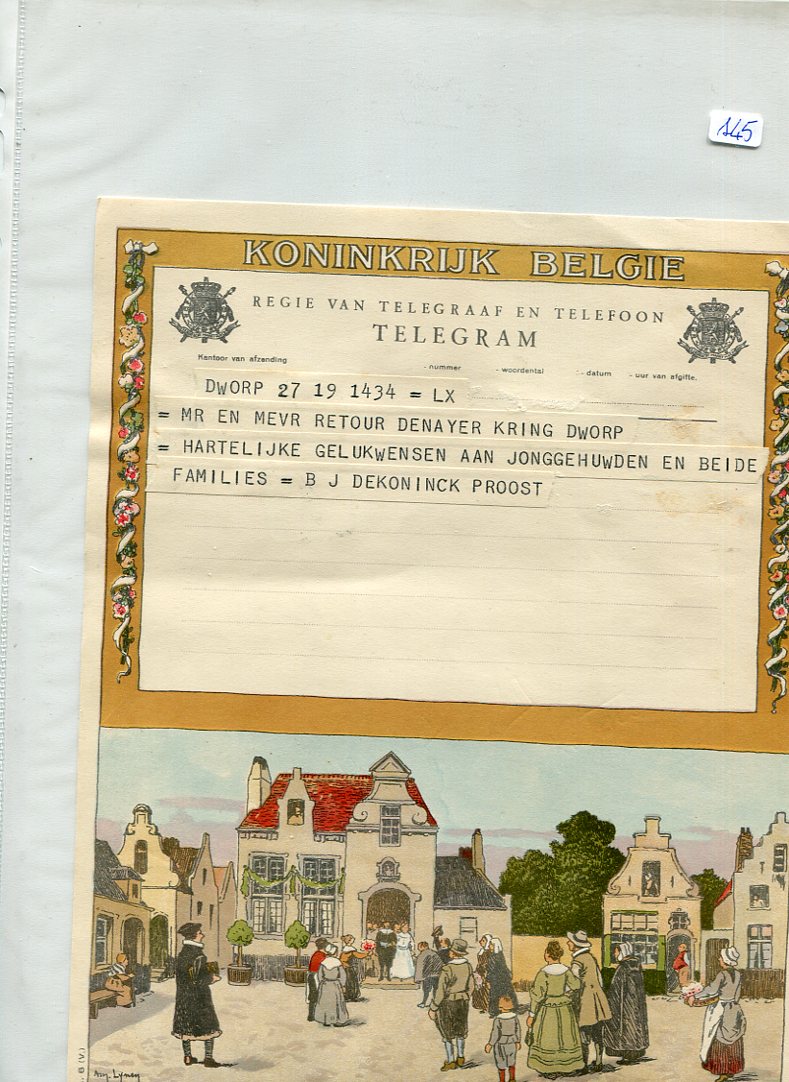 145
KONINKRIJK BELGIE
REGIE VAN TELEGRAAF EN TELEFOON
TELEGRAM
Kantoor van afzending - nummer - woordental - datum - uur van afgifte.
DWORP 27 19 1434 = LX
= MR EN MEVR RETOUR DENAYER KRING DWORP
= HARTELIJKE GELUKWENSEN AAN JONGGEHUWDEN EN BEIDE
FAMILIES = B J DEKONINCK PROOST
Am. Lynen
B (V)